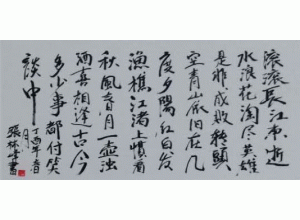 滚滚長江東逝
水浪花淘尽英雄
是非成敗轉頭
空青山依旧在几
度夕陽红白发
漁樵江渚上慣看
秋風春月一壶浊
酒喜相逢古今
多少事都付笑
談中
丁酉年春
月
張林峰書